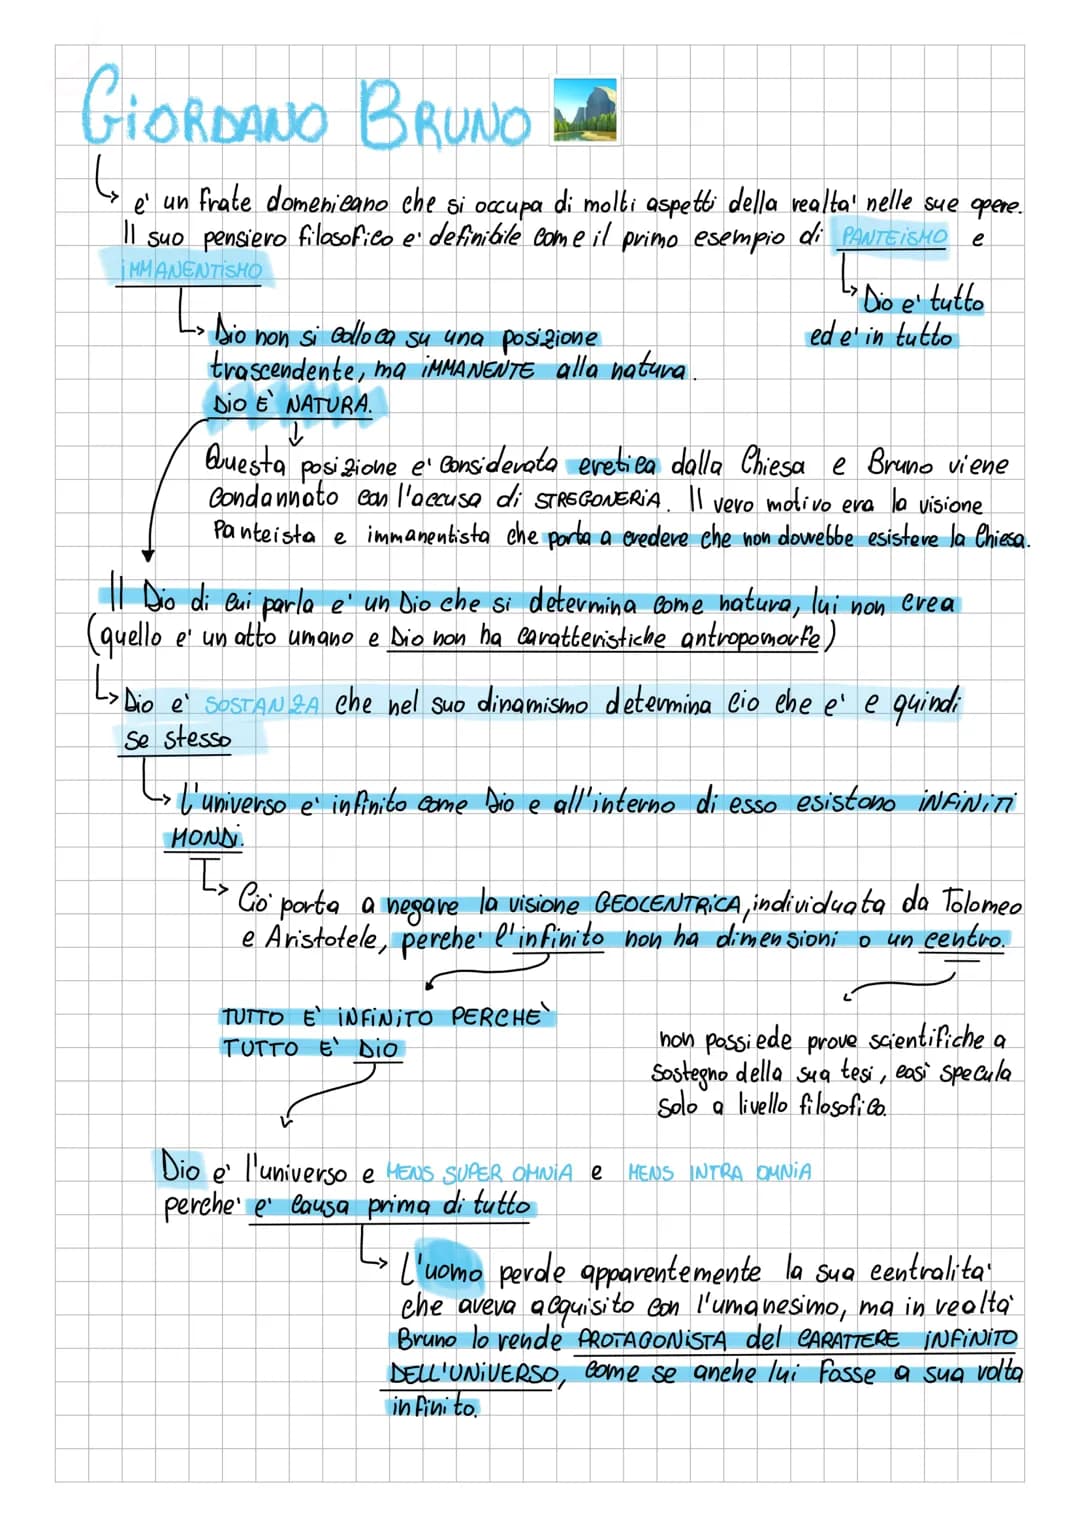 GiORDANO BRUNO
e' un frate domenicano che si occupa di molti aspetti della realta' nelle sue opere.
Il suo pensiero filosofico e' definibile come il primo esempio di PANTEiSMO e
iMMANENTiSMO
Dio e' tutto
ed e' in tutto
Dio non si colloca su una posizione
trascendente, ma iMMANENTE alla natura.
DiO E' NATURA.
Questa posizione e' considerata eretica dalla Chiesa e Bruno viene
condannato con l'accusa di STREGONERiA. Il vero motivo era la visione
Panteista e immanentista che porta a credere che non dovrebbe esistere la Chiesa.
Il Dio di cui parla e' un Dio che si determina come natura, lui non crea
(quello e' un atto umano e Dio non ha caratteristiche antropomorfe)
Dio e' SOSTANZA che nel suo dinamismo determina cio che e' e quindi
se stesso
L'universo e' infinito come Dio e all'interno di esso esistono iNFiNiTi
MONDi.
Cio' porta a negare la visione GEOCENTRiCA, individuata da Tolomeo
e Aristotele, perche' l'infinito non ha dimensioni o un centro.
TUTTO E' iNFiNiTO PERCHE'
TUTTO E' DiO
non possiede prove scientifiche a
sostegno della sua tesi, così specula
solo a livello filosofico.
Dio e' l'universo e MENS SUPER OMNiA e MENS INTRA OMNiA
perche' e' causa prima di tutto
L'uomo perde apparentemente la sua centralita'
che aveva acquisito con l'umanesimo, ma in realta'
Bruno lo rende PROTAGONiSTA del CARATTERE iNFiNiTO
DELL'UNiVERSO, come se anche lui fosse a sua volta
infinito.